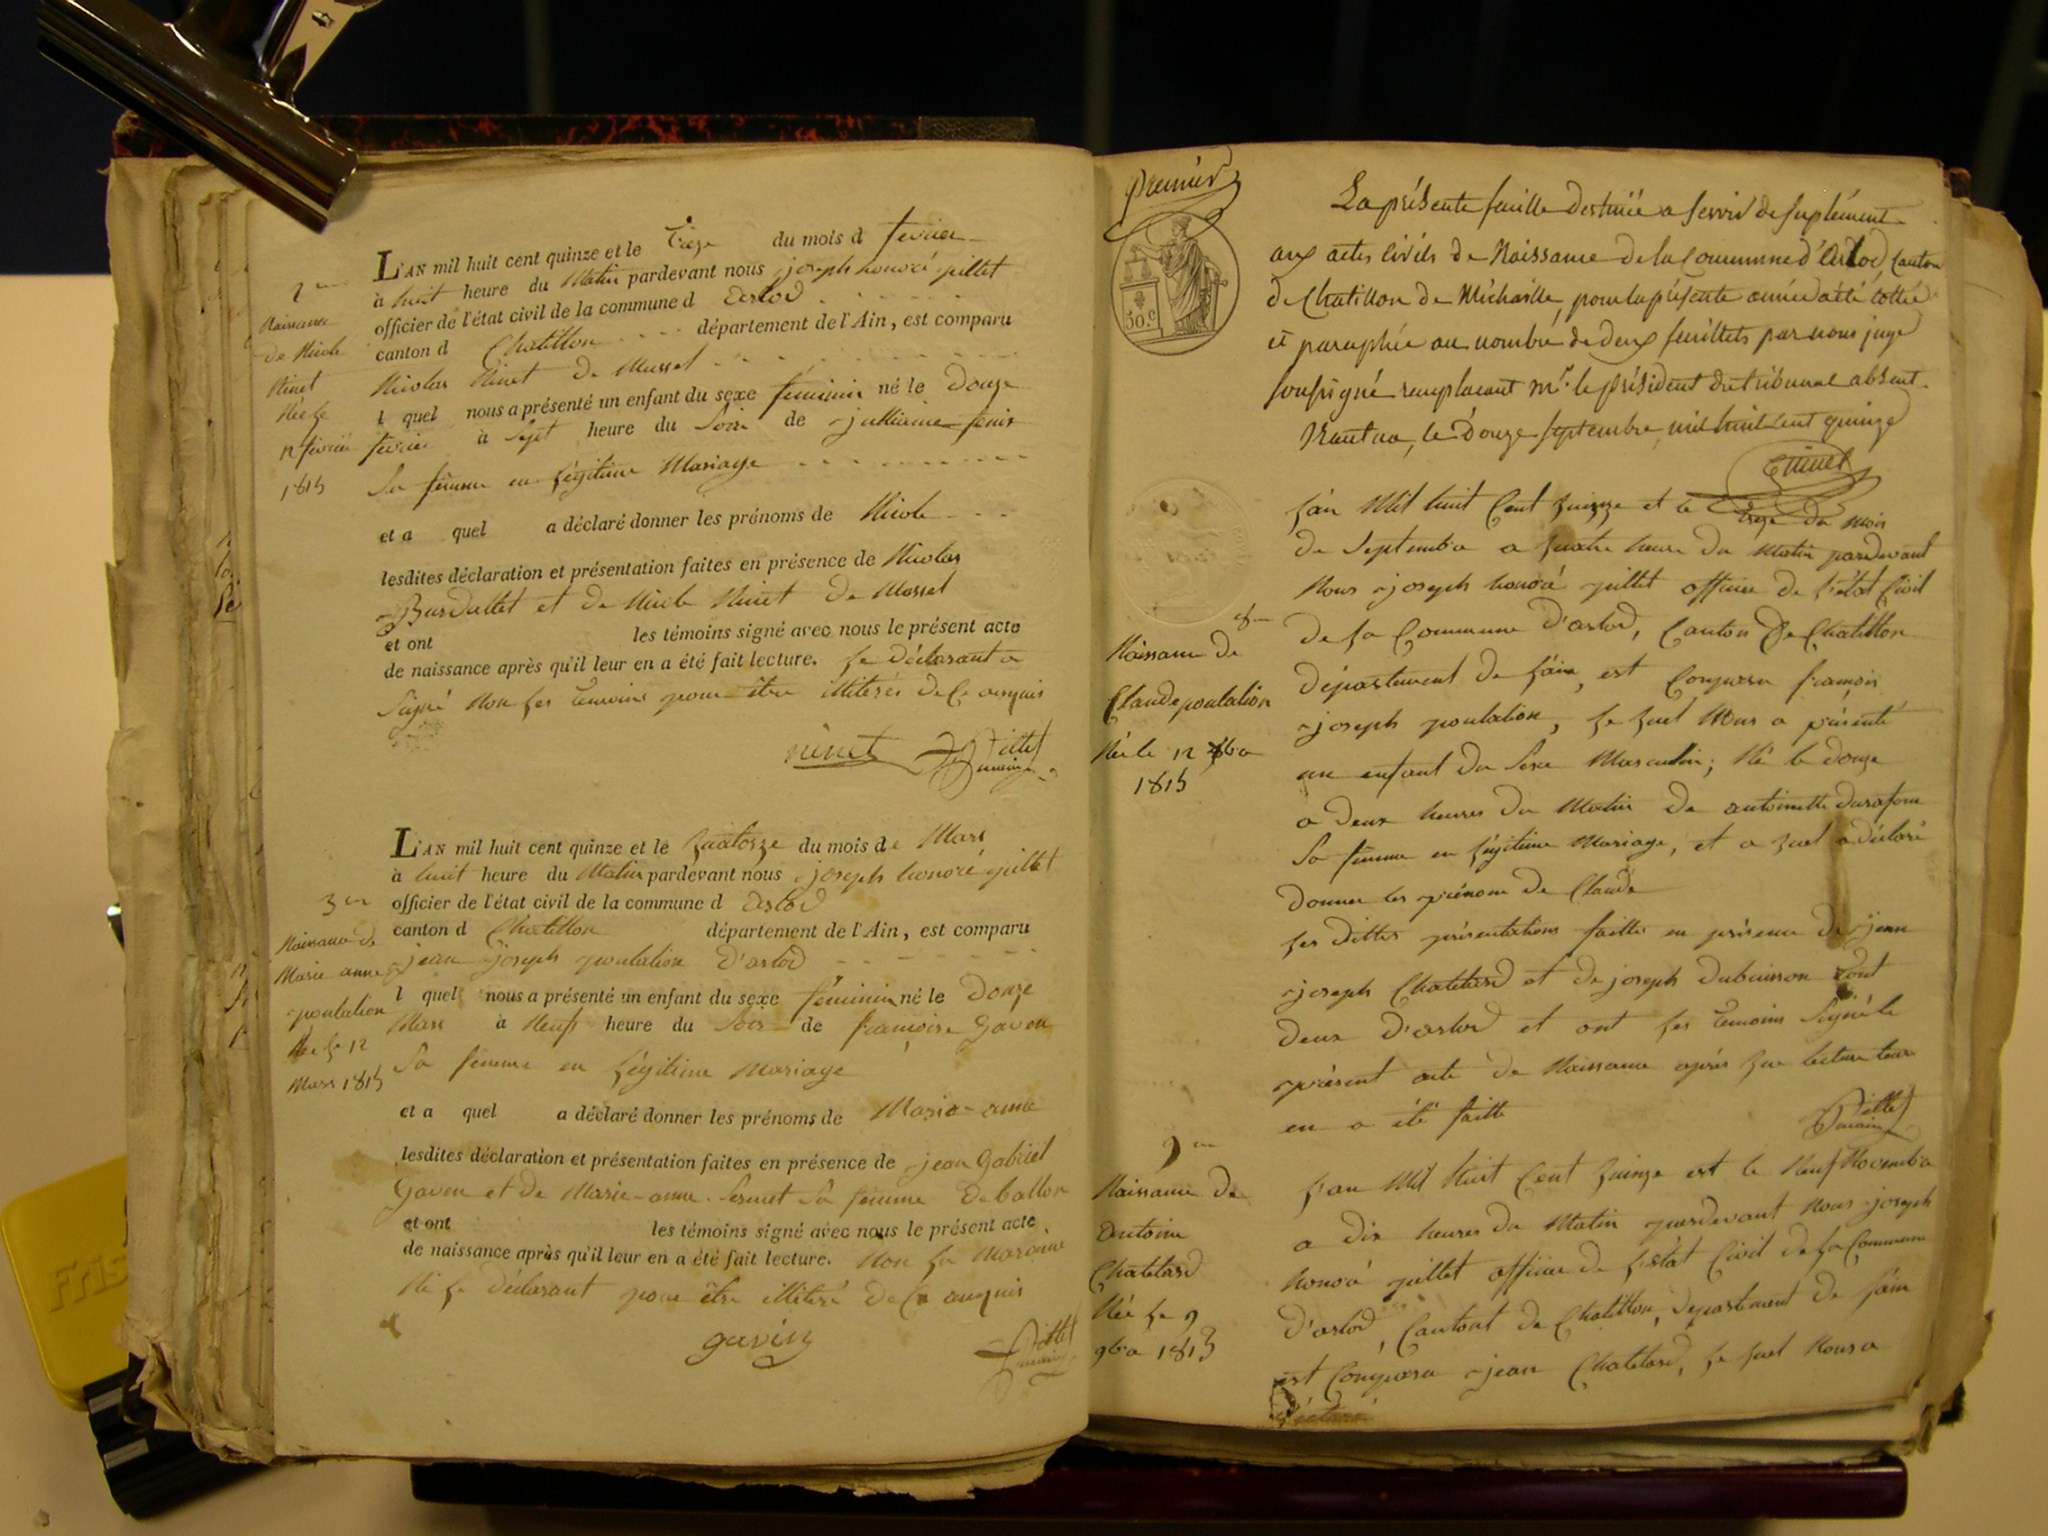 2me
Naissance
de Nicole
Ninet
Née le
12 février
1815
L'AN mil huit cent quinze et le Treze du mois d fevrier
à huit heure du Matin pardevant nous joseph honoré pillet
officier de l'état civil de la commune d arlod
canton d Chatillon département de l'Ain, est comparu
Nicolas Ninet de Mussel
l quel nous a présenté un enfant du sexe féminin né le Douze
fevrier à Sept heure du Soir de julliaine
Sa femme en légitime Mariage
et a quel a déclaré donner les prénoms de Nicole
lesdites déclaration et présentation faites en présence de Nicolas
Burdallet et de Nicole Ninet de Mussel
et ont les témoins signé avec nous le présent acte
de naissance après qu'il leur en a été fait lecture. le déclarant a
Signé Non les temoins pour être illiterés de ce enquis
ninet Pillet
maire
3me
Naissance de
Marie anne
poulation
Née le 12
Mars 1815
L'AN mil huit cent quinze et le quatorze du mois de Mars
à huit heure du Matin pardevant nous joseph honoré pillet
officier de l'état civil de la commune d arlod
canton d Chatillon département de l'Ain, est comparu
jean joseph poulation d'arlod
l quel nous a présenté un enfant du sexe féminin né le Douze
Mars à Neuf heure du Soir de françoise Gaven
Sa femme en légitime mariage
et a quel a déclaré donner les prénoms de Marie-anne
lesdites déclaration et présentation faites en présence de jean Gabriel
Gaven et de Marie-anne Sa femme de ballon
et ont les témoins signé avec nous le présent acte
de naissance après qu'il leur en a été fait lecture. Non la Maraine
Ni le déclarant pour être illiteré de Ce enquis
gavin Pillet
maire
premier
50.c
La présente feuille destinée a servir de suplément
aux actes civils de Naissance de la Commune d'Arlod, Canton
de Chatillon de Michaille, pour la présente année a été cottée
et paraphée au nombre de deux feuillets par nous juge
soussigné remplacant Mr. le président du tribunal absent.
Nantua, le Douze septembre mil huit cent quinze
8me
Naissance de
Claude poulation
Né le 12 7bre
1815
L'an Mil huit Cent quinze et le treze du mois
de Septembre a quatre heure du Matin pardevant
Nous joseph honoré pillet officier de l'état Civil
de la Commune d'arlod, Canton de Chatillon
département de l'ain, est Comparu françois
joseph poulation, le quel Nous a présenté
un enfant du Sexe Masculin; Né le douze
a deux heures du Matin de antoinette durafour
Sa femme en légitime Mariage, et a quel a déclaré
donner les prénoms de Claude
les dittes présentations faitte en présence de jean
joseph Chatelard et de joseph dubuisson tout
deux d'arlod et ont les temoins Signé le
présent acte de Naissance après que lecture leur
en a été faitte Pillet
maire
9me
Naissance de
antoine
Chatelard
Née le 9
9bre 1815
L'an Mil huit Cent quinze est le Neuf Novembre
a dix heures du Matin pardevant Nous joseph
honoré pillet officier de l'état Civil de la Commune
d'arlod, Cantont de Chatillon, département de l'ain
est Comparu jean Chatelard, le quel Nous a
déclaré
Fris